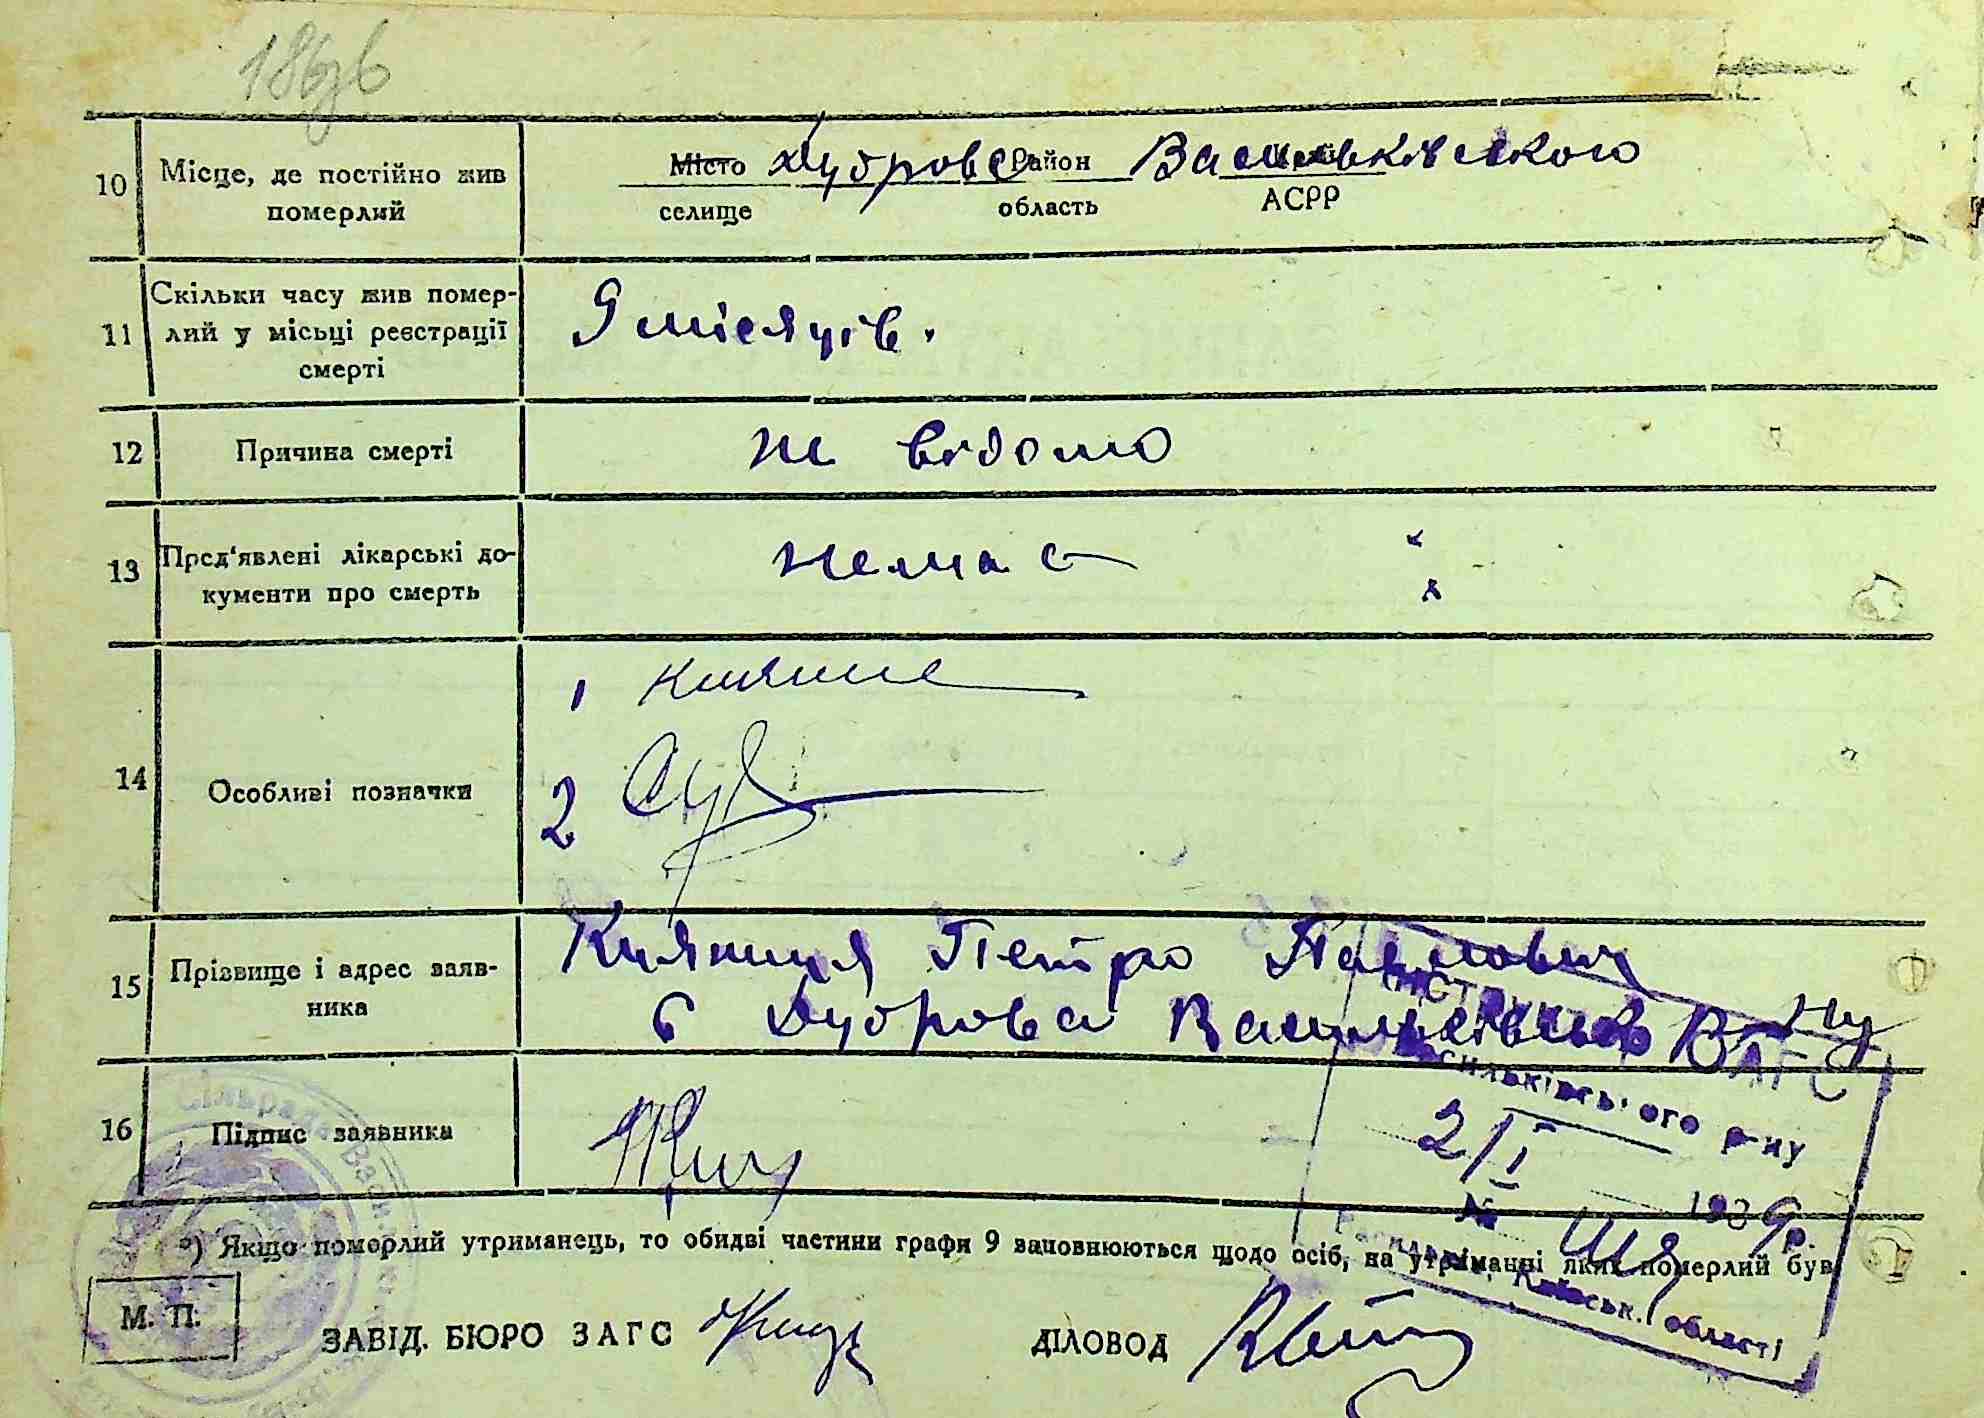 186зв
10 Місце, де постійно жив померлий
Місто Дуброва Район Васильківського
селище область АСРР
11 Скільки часу жив померлий у місьці реєстрації смерті
9 місяців.
12 Причина смерті
не відомо
13 Пред'явлені лікарські документи про смерть
немає
14 Особливі позначки
1
2
15 Прізвище і адрес заявника
Кияниця Петро Павлович
с Дуброва Васильківськ
16 Підпис заявника
ЗАГС
Васильківського р-ну
2/I 1939р.
№
Васильків, Київськ. області
Сільрада
*) Якщо померлий утриманець, то обидві частини графи 9 заповнюються щодо осіб, на утриманні яких померлий був
М. П.
ЗАВІД. БЮРО ЗАГС
ДІЛОВОД